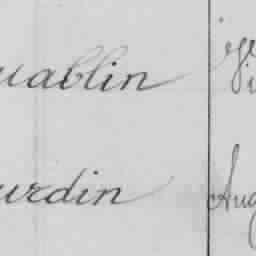 uablin
urdin Aug